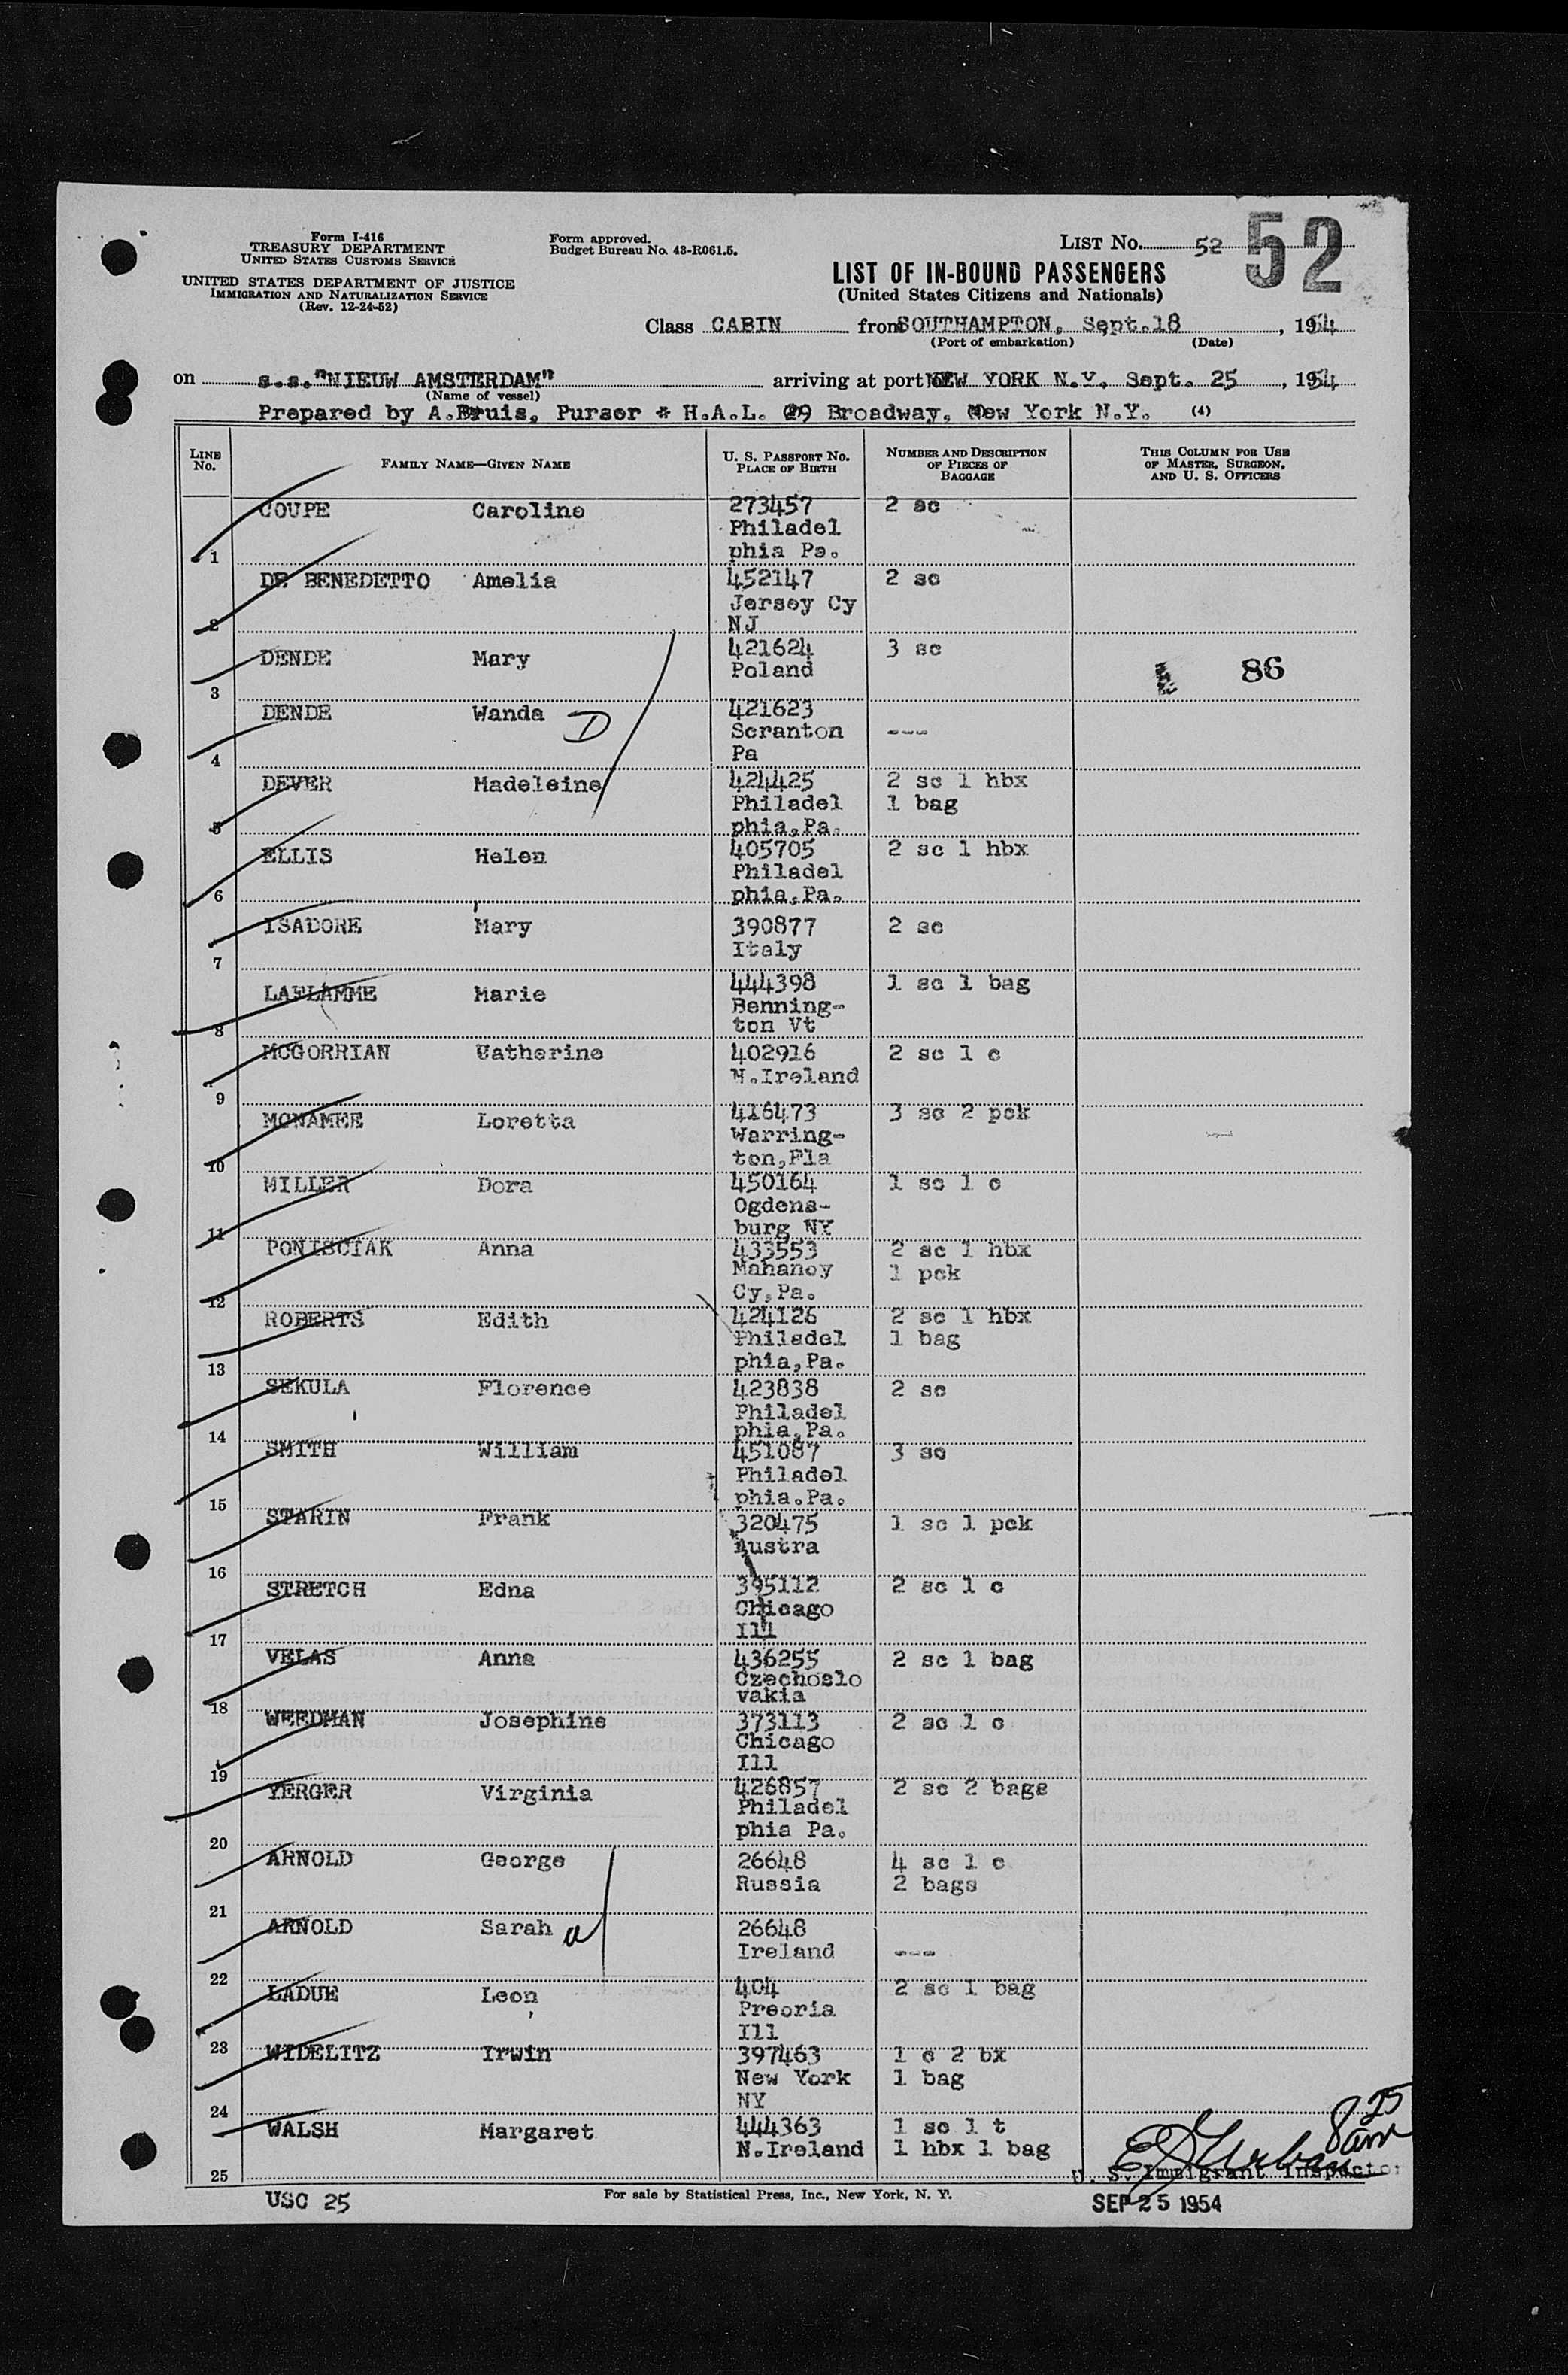 Form I-416
TREASURY DEPARTMENT
UNITED STATES CUSTOMS SERVICE
UNITED STATES DEPARTMENT OF JUSTICE
IMMIGRATION AND NATURALIZATION SERVICE
(Rev. 12-24-52)
Form approved.
Budget Bureau No. 43-R061.5.
LIST No. 52
52
LIST OF IN-BOUND PASSENGERS
(United States Citizens and Nationals)
Class CABIN from SOUTHAMPTON, Sept.18, 1954
(Port of embarkation) (Date)
on s.s."NIEUW AMSTERDAM" arriving at port of NEW YORK N.Y. Sept. 25, 1954
(Name of vessel)
Prepared by A.Bruis, Purser * H.A.L. 29 Broadway, New York N.Y. (4)
LINE No. FAMILY NAME—GIVEN NAME U. S. PASSPORT NO. PLACE OF BIRTH NUMBER AND DESCRIPTION OF PIECES OF BAGGAGE THIS COLUMN FOR USE OF MASTER, SURGEON, AND U. S. OFFICERS
COUPE Caroline 273457 2 sc
Philadel
1 phia Pa.
DE BENEDETTO Amelia 452147 2 sc
Jersey Cy
2 NJ
DENDE Mary 421624 3 sc
Poland 86
3
DENDE Wanda D 421623
Scranton ---
4 Pa
DEVER Madeleine 424425 2 sc 1 hbx
Philadel 1 bag
5 phia,Pa.
ELLIS Helen 405705 2 sc 1 hbx
Philadel
6 phia,Pa.
ISADORE Mary 390877 2 sc
Italy
7
LAFLAMME Marie 444398 1 sc 1 bag
Benning-
8 ton Vt
MCGORRIAN Catherine 402916 2 sc 1 c
N.Ireland
9
MCNAMEE Loretta 416473 3 sc 2 pck
Warring-
10 ton,Fla
MILLER Dora 450164 1 sc 1 c
Ogdens-
11 burg NY
PONISCIAK Anna 433553 2 sc 1 hbx
Mahanoy 1 pck
12 Cy,Pa.
ROBERTS Edith 424126 2 sc 1 hbx
Philadel 1 bag
13 phia,Pa.
SEKULA Florence 423838 2 sc
Philadel
14 phia,Pa.
SMITH William 451087 3 sc
Philadel
15 phia.Pa.
STARIN Frank 320475 1 sc 1 pck
Austra
16
STRETCH Edna 395112 2 sc 1 c
Chicago
17 Ill
VELAS Anna 436255 2 sc 1 bag
Czechoslo
18 vakia
WEEDMAN Josephine 373113 2 sc 1 c
Chicago
19 Ill
YERGER Virginia 426857 2 sc 2 bags
Philadel
20 phia Pa.
ARNOLD George 26648 4 sc 1 c
Russia 2 bags
21
ARNOLD Sarah 26648
Ireland ---
22
LADUE Leon 404 2 sc 1 bag
Preoria
23 Ill
WIDELITZ Irwin 397463 1 c 2 bx
New York 1 bag
24 NY
WALSH Margaret 444363 1 sc 1 t
N.Ireland 1 hbx 1 bag
25
8 25 am
U. S. Immigrant Inspector
USC 25
For sale by Statistical Press, Inc., New York, N. Y.
SEP 25 1954